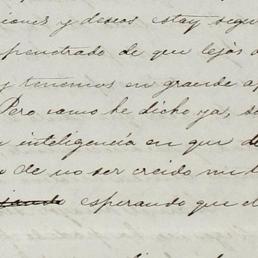 iones y deseos estoy segu
penetrado de que lejos d
y tenemos en grande ap
Pero como he dicho ya, s
inteligencia en que
de no ser creido mi
esperando que el